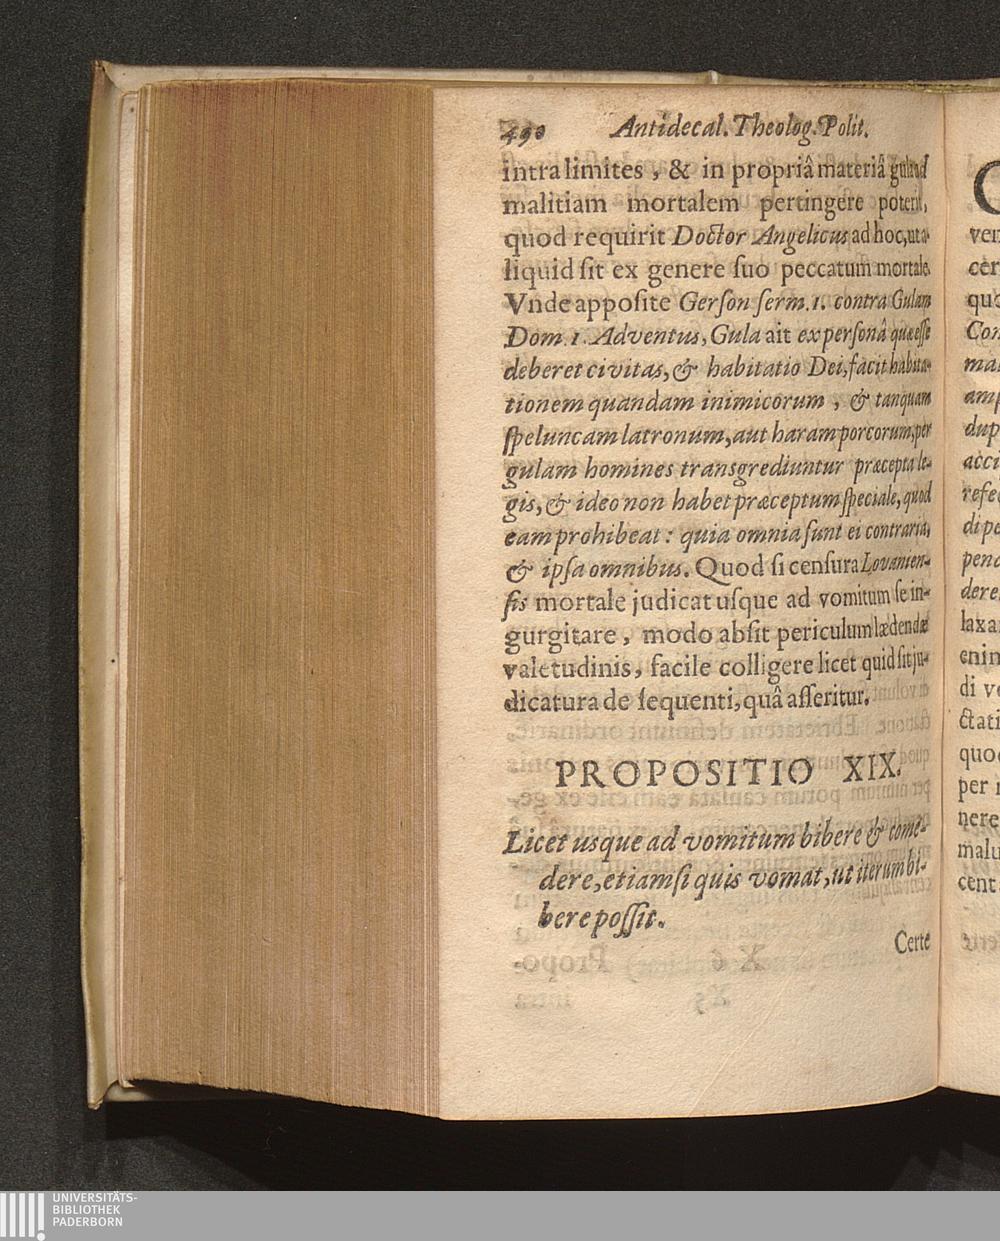 490 Antidecal. Theolog. Polit.
intra limites, & in propriâ materiâ gulæ ad
malitiam mortalem pertingere poterit,
quod requirit Doctor Angelicus ad hoc, ut a-
liquid ſit ex genere ſuo peccatum mortale.
Vnde appoſite Gerſon ſerm. 1. contra Gulam
Dom. 1. Adventus, Gula ait ex perſonâ quæ eſſe
deberet civitas, & habitatio Dei, facit habita-
tionem quandam inimicorum, & tanquam
ſpeluncam latronum, aut haram porcorum, per
gulam homines transgrediuntur præcepta le-
gis, & ideo non habet præceptum ſpeciale, quod
eam prohibeat: quia omnia ſunt ei contraria,
& ipſa omnibus. Quod ſi cenſura Lovanien-
ſis mortale judicat uſque ad vomitum ſe in-
gurgitare, modo abſit periculum lædendæ
valetudinis, facile colligere licet quid ſit ju-
dicatura de ſequenti, quâ aſſeritur.
PROPOSITIO XIX.
Licet usque ad vomitum bibere & come-
dere, etiamſi quis vomat, ut iterum bi-
bere poſſit.
Certe
ven
cer
quo
Con
mal
amp
dup
acci
refec
di pe
pend
dere
laxa
enim
di ve
ctati
quod
per
nere
malu
cent
UNIVERSITÄTS-
BIBLIOTHEK
PADERBORN